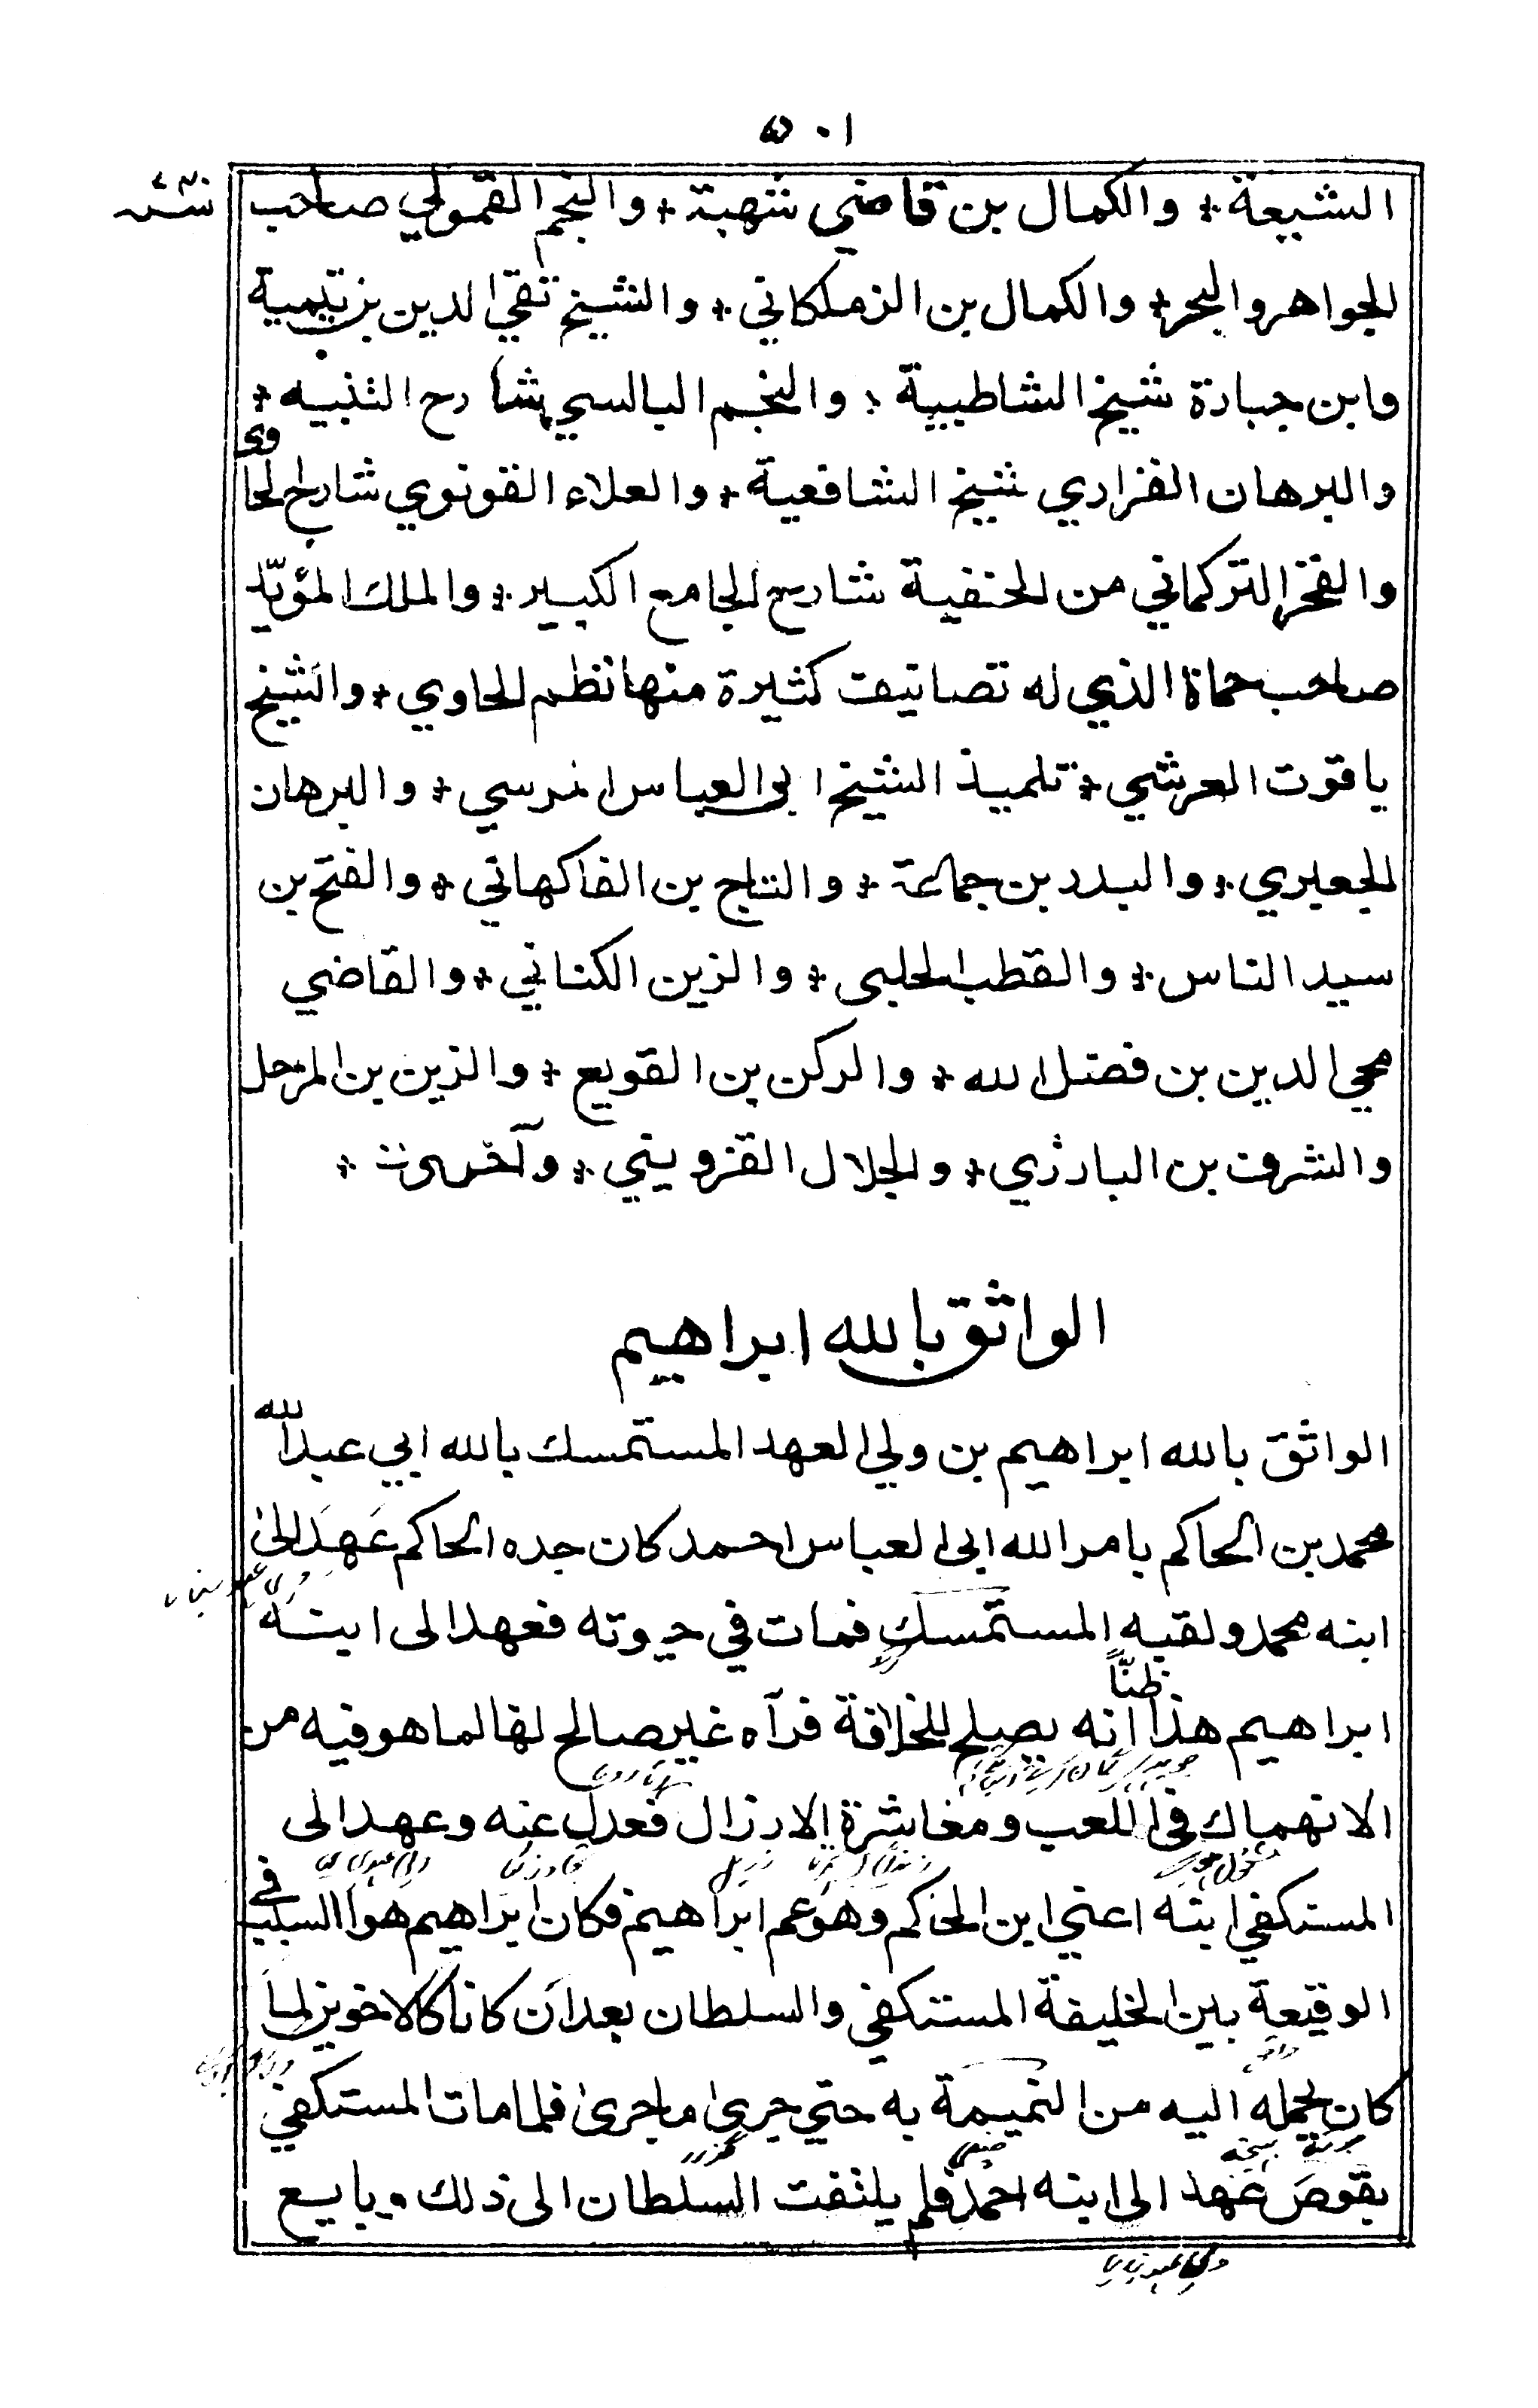 ٥٠١
الشيعة * والكمال بن قاضي شهبة * والنجم القمولي صاحب
الجواهر والبحر * والكمال بن الزملكاني * والشيخ تقي الدين بن تيمية
وابن جبارة شيخ الشاطبية * والنجم البالسي شارح التنبيه *
والبرهان الفزاري شيخ الشافعية * والعلاء القونوي شارح الحاوي
والفخر التركماني من الحنفية شارح الجامع الكبير * والملك المؤيّد
صاحب حماة الذي له تصانيف كثيرة منها نظم الحاوي * والشيخ
ياقوت العرشي * تلميذ الشيخ ابى العباس المرسي * والبرهان
الجعبري * والبدر بن جماعة * والتاج بن الفاكهاني * والفتح بن
سيد الناس * والقطب الحلبى * والزين الكناني * والقاضي
محيي الدين بن فضل الله * والركن بن القويع * والزين بن المرحل
والشرف بن البارزي * والجلال القزويني * وآخرون *
الواثق بالله ابراهيم
الواثق بالله ابراهيم بن ولي العهد المستمسك بالله ابي عبد الله
محمد بن الحاكم بامر الله ابى العباس احمد كان جده الحاكم عَهِدَ الى
ابنه محمد ولقبه المستمسك فمات في حيوته فعهد الى ابنه
ابراهيم هذا ظنّاً انه يصلح للخلافة فرآه غير صالح لها لما هو فيه من
الانهماك في اللعب ومعاشرة الارزال فعدل عنه وعهد الى
المستكفي ابنه اعني ابن الحاكم وهو عم ابراهيم فكان ابراهيم هو السبب في
الوقيعة بين الخليفة المستكفي والسلطان بعد ان كانا كالاخوين لما
كان يحمله اليه من النميمة به حتي جرىٰ ما جرىٰ فلما مات المستكفي
بقوص عهد الى ابنه احمد فلم يلتفت السلطان الى ذلك وبايع